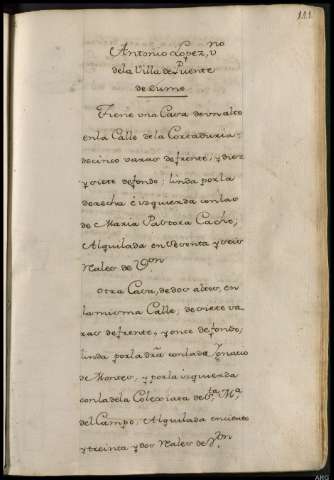 111.
Antonio Lopez, v.no
de la Villa de Puente
de Eume
Tiene una Casa de un alto
en la Calle de la Cortaduria
de cinco varas de frente, y diez
y siete de fondo; linda por la
derecha è izquierda con las
de Maria Pastora Cacho;
Alquilada en sesenta y seis
Reales de Von
Otra Casa, de dos altos, en
la misma Calle; de siete va
ras de frente, y once de fondo;
linda por la dra con la de Ignacio
de Montes, y por la izquierda
con la de la Colexiata de Sta Ma
del Campo; Alquilada en ciento
y treinta y dos Reales de Von
AKG